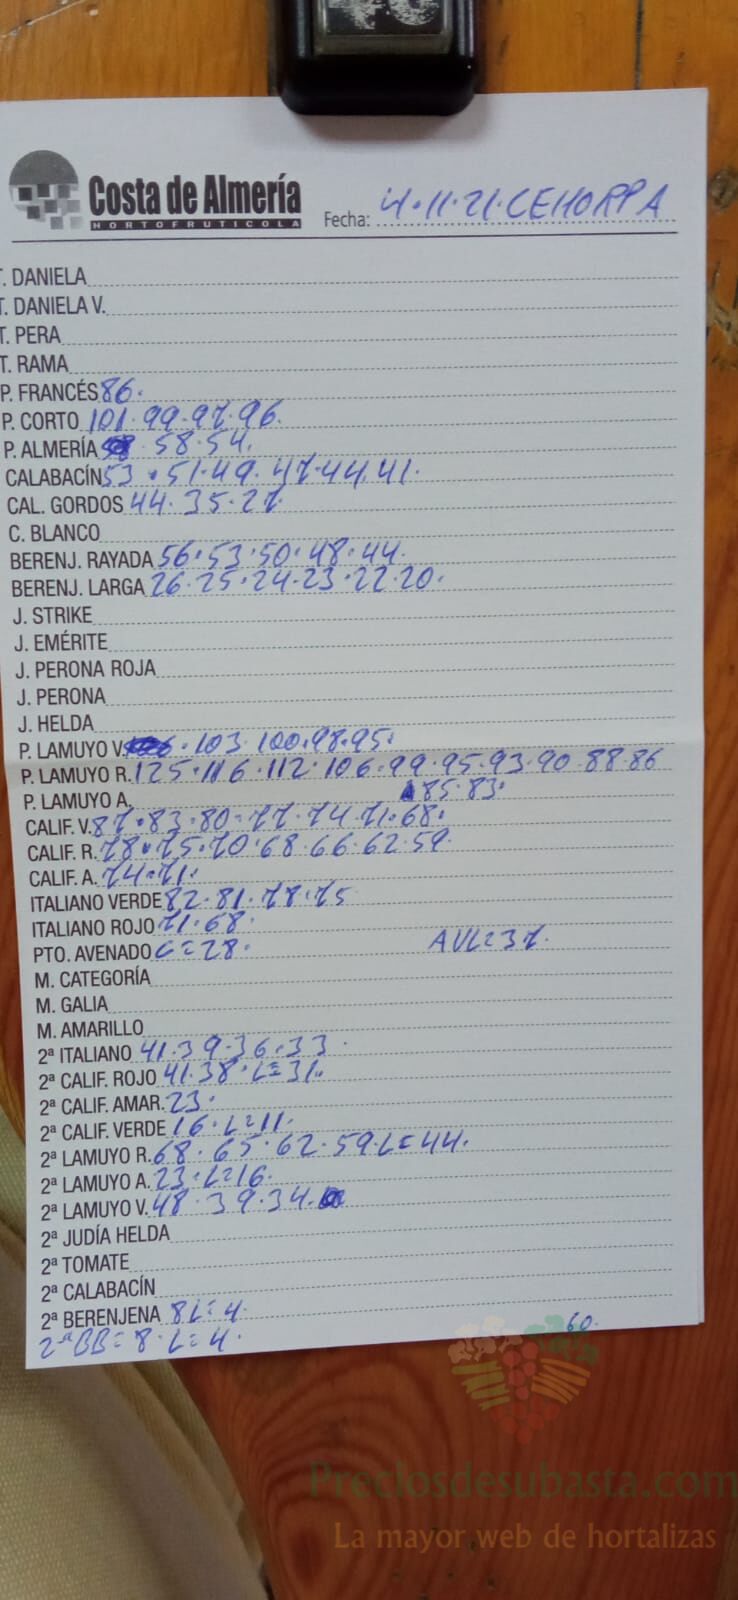 Costa de Almería
HORTOFRUTICOLA
Fecha: 4.11.21.CEHORPA
T. DANIELA
T. DANIELA V.
T. PERA
T. RAMA
P. FRANCÉS 86.
P. CORTO 101.99.97.96.
P. ALMERÍA 58.54.
CALABACÍN 53.51.49.47.44.41.
CAL. GORDOS 44.35.27
C. BLANCO
BERENJ. RAYADA 56.53.50.48.44.
BERENJ. LARGA 26.25.24.23.22.20.
J. STRIKE
J. EMÉRITE
J. PERONA ROJA
J. PERONA
J. HELDA
P. LAMUYO V. .103.100.98.95.
P. LAMUYO R. 125.116.112.106.99.95.93.90.88.86
P. LAMUYO A. 85.83.
CALIF. V. 87.83.80.77.74.71.68.
CALIF. R. 78.75.70.68.66.62.59.
CALIF. A. 74.71.
ITALIANO VERDE 82.81.78.75
ITALIANO ROJO 71.68.
PTO. AVENADO C=28. AVL=37.
M. CATEGORÍA
M. GALIA
M. AMARILLO
2ª ITALIANO 41.39.36.33.
2ª CALIF. ROJO 41.38.L=31.
2ª CALIF. AMAR. 23.
2ª CALIF. VERDE 16.L=11.
2ª LAMUYO R. 68.65.62.59.L=44.
2ª LAMUYO A. 23.L=16.
2ª LAMUYO V. 48.39.34.
2ª JUDÍA HELDA
2ª TOMATE
2ª CALABACÍN
2ª BERENJENA 8L=4.
2ªBB=8.L=4.
60.
Preciosdesubasta.com
La mayor web de hortalizas